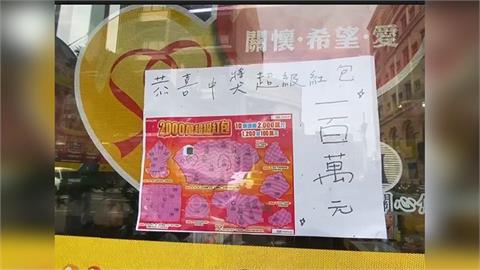 關懷·希望·愛
恭喜中獎超級紅包
一百萬元
2000萬超級紅包
2,000萬元
1,200張100萬元